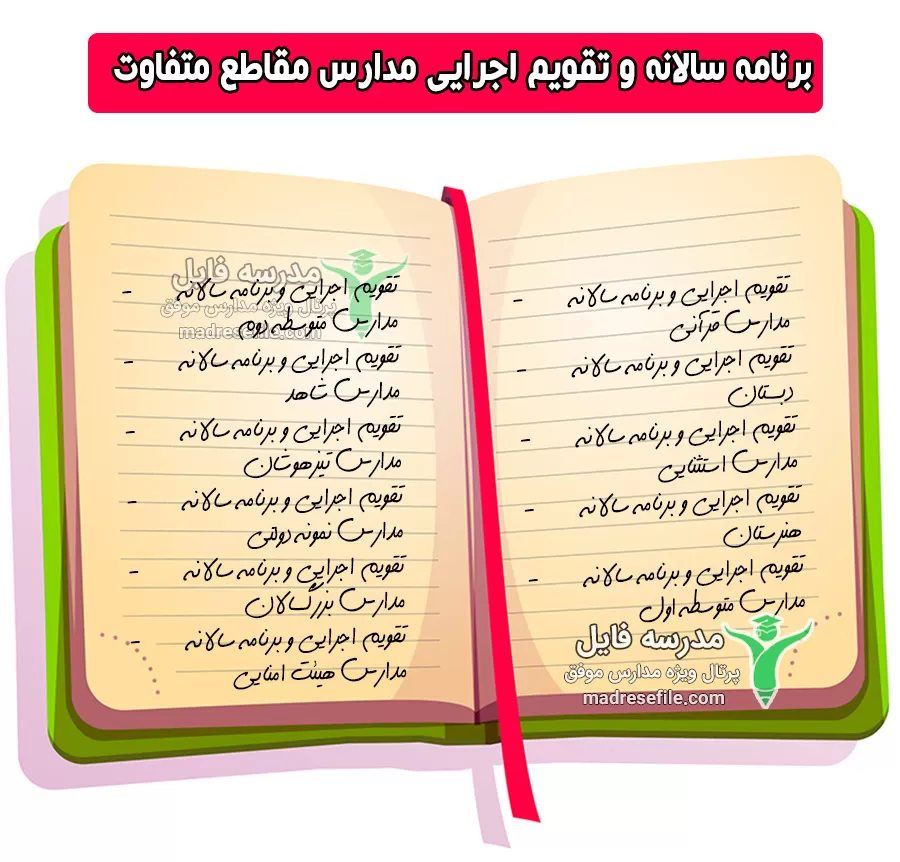 برنامه سالانه و تقویم اجرایی مدارس مقاطع متفاوت
تقویم اجرایی و برنامه سالانه -
مدارس قرآنی
تقویم اجرایی و برنامه سالانه -
دبستان
تقویم اجرایی و برنامه سالانه -
مدارس استثنایی
تقویم اجرایی و برنامه سالانه -
هنرستان
تقویم اجرایی و برنامه سالانه -
مدارس متوسطه اول
مدرسه فایل
پرتال ویژه مدارس موفق
madresefile.com
تقویم اجرایی و برنامه سالانه -
مدارس متوسطه دوم
تقویم اجرایی و برنامه سالانه -
مدارس شاهد
تقویم اجرایی و برنامه سالانه -
مدارس تیزهوشان
تقویم اجرایی و برنامه سالانه -
مدارس نمونه دولتی
تقویم اجرایی و برنامه سالانه -
مدارس بزرگسالان
تقویم اجرایی و برنامه سالانه -
مدارس هیئت امنایی
مدرسه فایل
پرتال ویژه مدارس موفق
madresefile.com